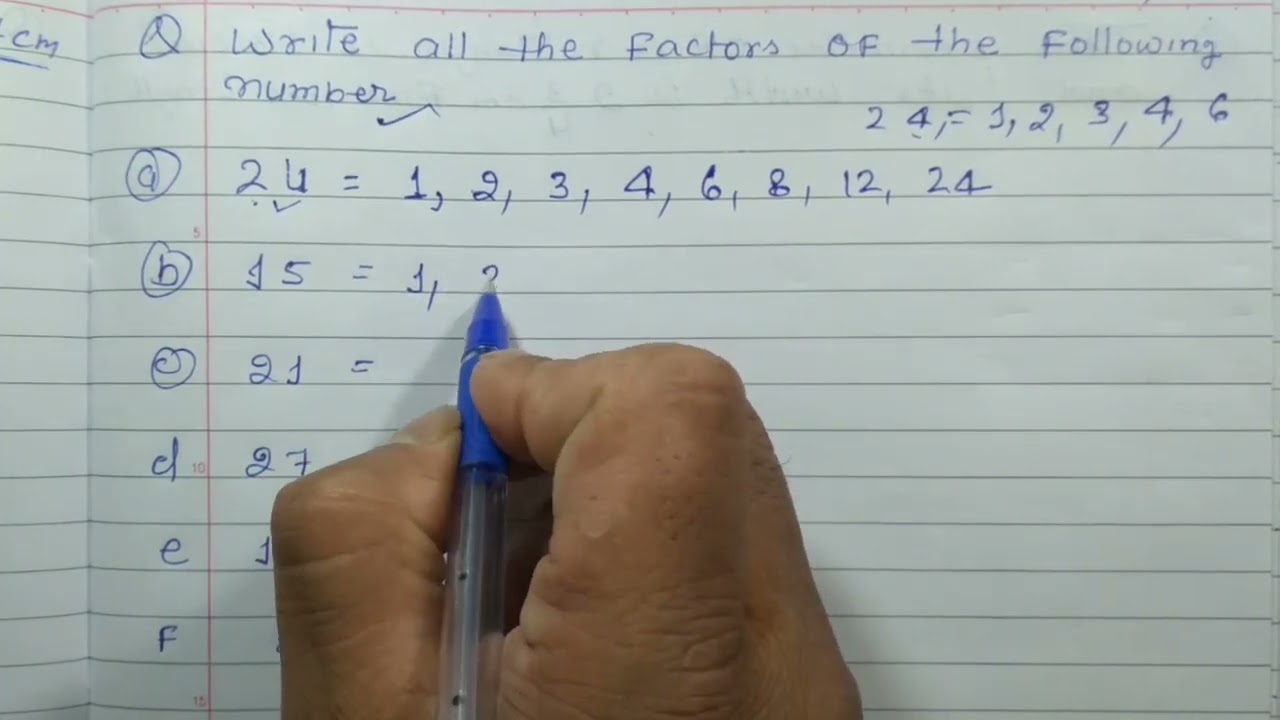 cm
Q Write all the Factors OF the Following
number
24,= 1, 2, 3, 4, 6
a 24 = 1, 2, 3, 4, 6, 8, 12, 24
b 15 = 1,
c 21 =
d 27
e 1
F
5
10
15